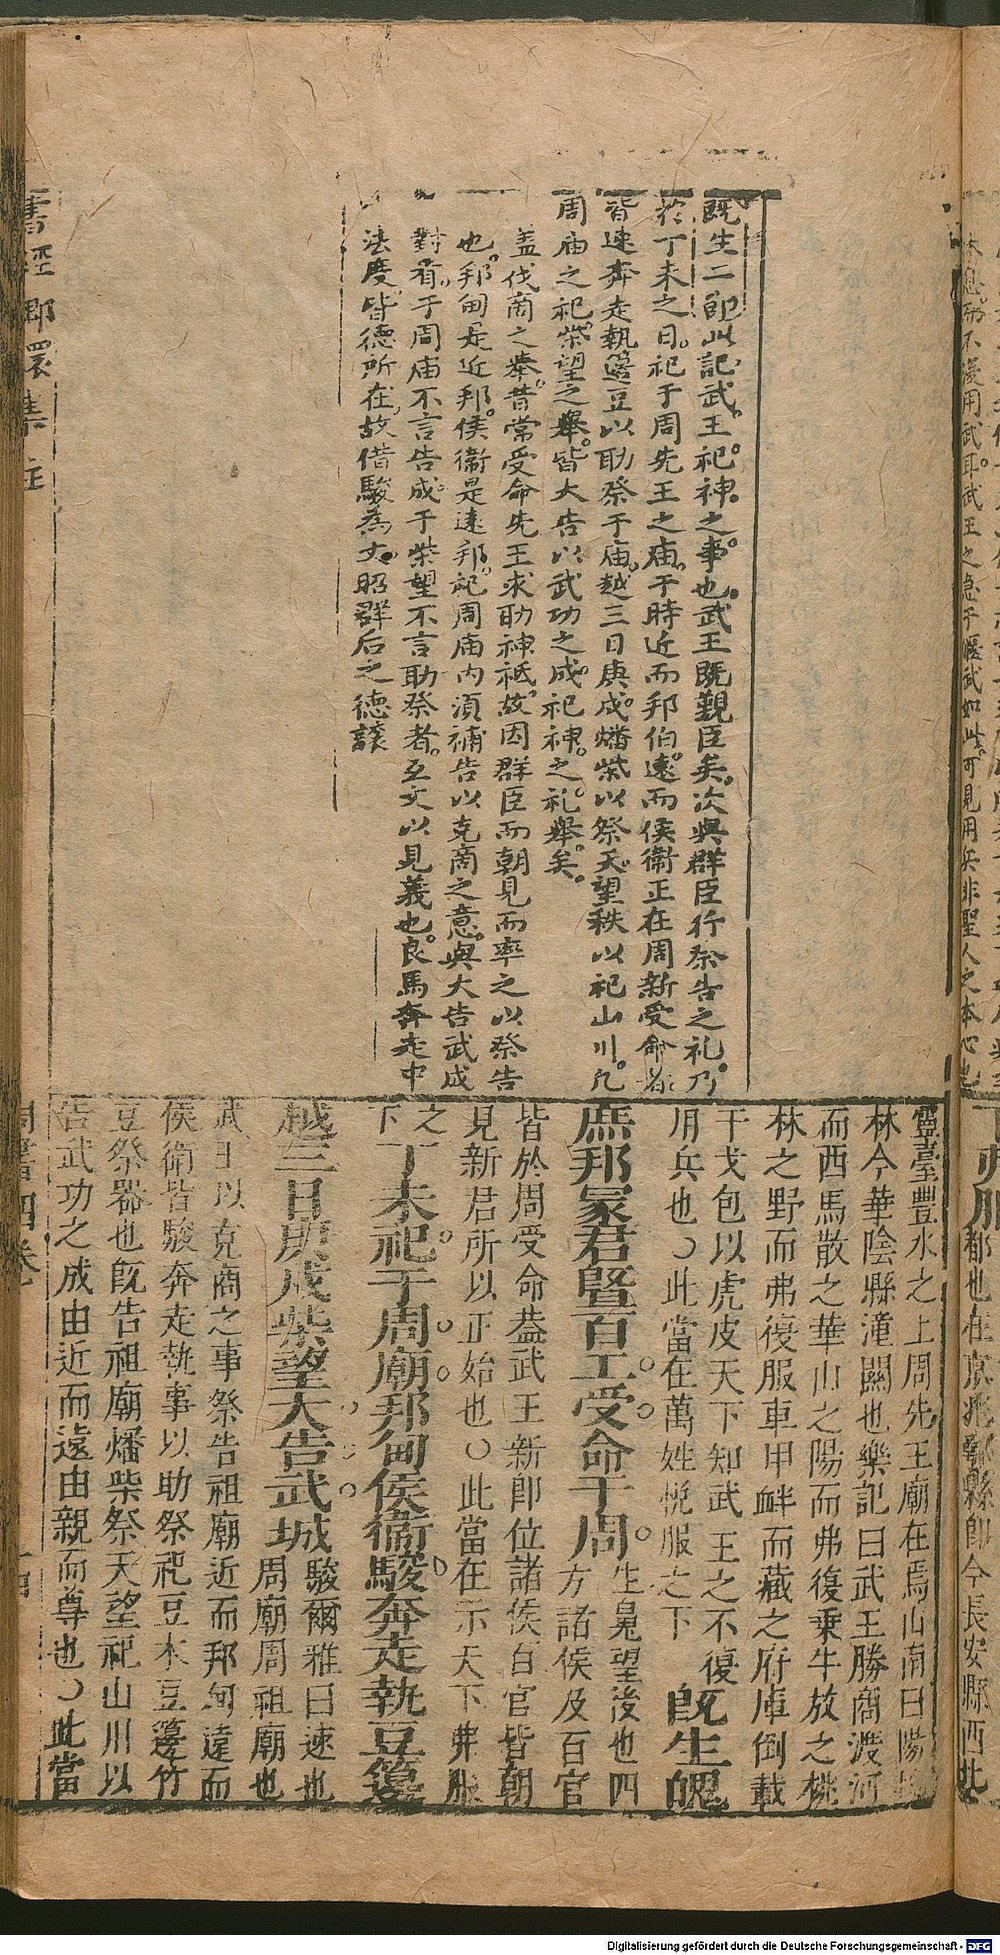 既生二節此記武王祀神之事也武王既覲臣矣次與群臣行祭告之礼乃
於丁未之日祀于周先王之庙于時近而邦伯遠而侯衛正在周新受命者
皆速奔走執籩豆以助祭于庙越三日庚戌燔柴以祭天望秩以祀山川凡
周庙之祀柴望之舉皆大告以武功之成祀神之礼舉矣
盖伐商之舉昔常受命先王求助神祇故因群臣而朝見而率之以祭告
也邦甸是近邦侯衞是遠邦祀周庙内須補告以克商之意與大告武成
對看于周庙不言告成于柴望不言助祭者互文以見義也良馬奔走中
法度皆德所在故借駿為大昭群后之德讓
靈臺豐水之上周先王廟在焉山南曰陽
林今華陰縣潼關也樂記曰武王勝商渡河
而西馬散之華山之陽而弗復乗牛放之桃
林之野而弗復服車甲衅而藏之府庫倒載
干戈包以虎皮天下知武王之不復
用兵也○此當在萬姓悅服之下 既生魄
庶邦冢君曁百工受命于周 生魄望後也四方諸侯及百官
皆於周受命葢武王新卽位諸侯百官皆朝
見新君所以正始也○此當在示天下弗服
之下 丁未祀于周廟邦甸侯衞駿奔走執豆籩
越三日庚戌柴望大告武城 駿爾雅曰速也周廟周祖廟也
武王以克商之事祭告祖廟近而邦甸遠而
侯衛皆駿奔走執事以助祭祀豆木豆籩竹
豆祭器也旣告祖廟燔柴祭天望祀山川以
告武功之成由近而遠由親而尊也○此當
書經 集註
周書四卷
Digitalisierung gefördert durch die Deutsche Forschungsgemeinschaft - DFG